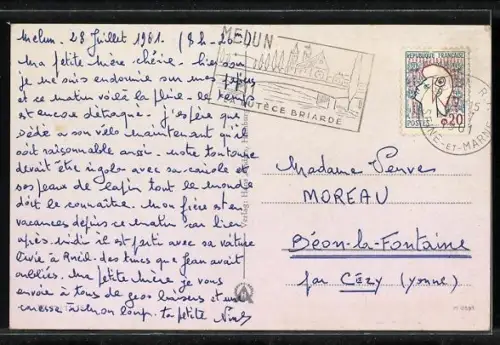 Melun, 28 Juillet 1961. (8h-20
Ma petite mère chérie. hier soir
je me suis endormie sur mes
et ce matin voilà la pluie. le temps
est encore détraqué. j'espère que
Dédé a son vélo maintenant qu'il
soit raisonnable aussi. notre tonton
devait être rigolo avec sa carriole et
ses peaux de lapin tout le monde
doit le connaître. Mon frère est en
vacances depuis ce matin car hier
après-midi il est parti avec sa voiture
livrée à Rueil. des trucs que Jean avait
oubliés. Ma petite mère je vous
envoie à tous de gros baisers et une
caresse à mon loup. ta petite
MELUN
LUTÈCE BRIARDE
REPUBLIQUE FRANÇAISE
POSTES
0.20
SEINE-ET-MARNE
Madame Veuve
MOREAU
Béon-la-Fontaine
par Cézy (Yonne)
Verlag: Hans